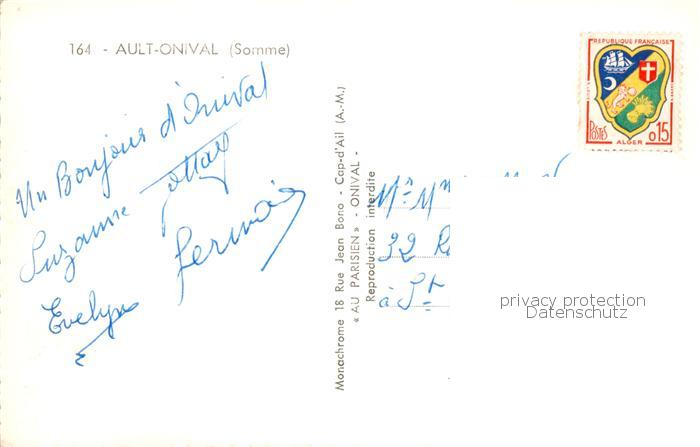 164 - AULT-ONIVAL (Somme)
Un Bonjour d'Onival
Suzanne
Germain
Evelyne
Monachrome 18 Rue Jean Bono - Cap-d'Ail (A.-M.)
« AU PARISIEN » - ONIVAL -
Reproduction interdite
REPUBLIQUE FRANÇAISE
POSTES
0,15
ALGER
Mr
32
à St
privacy protection
Datenschutz